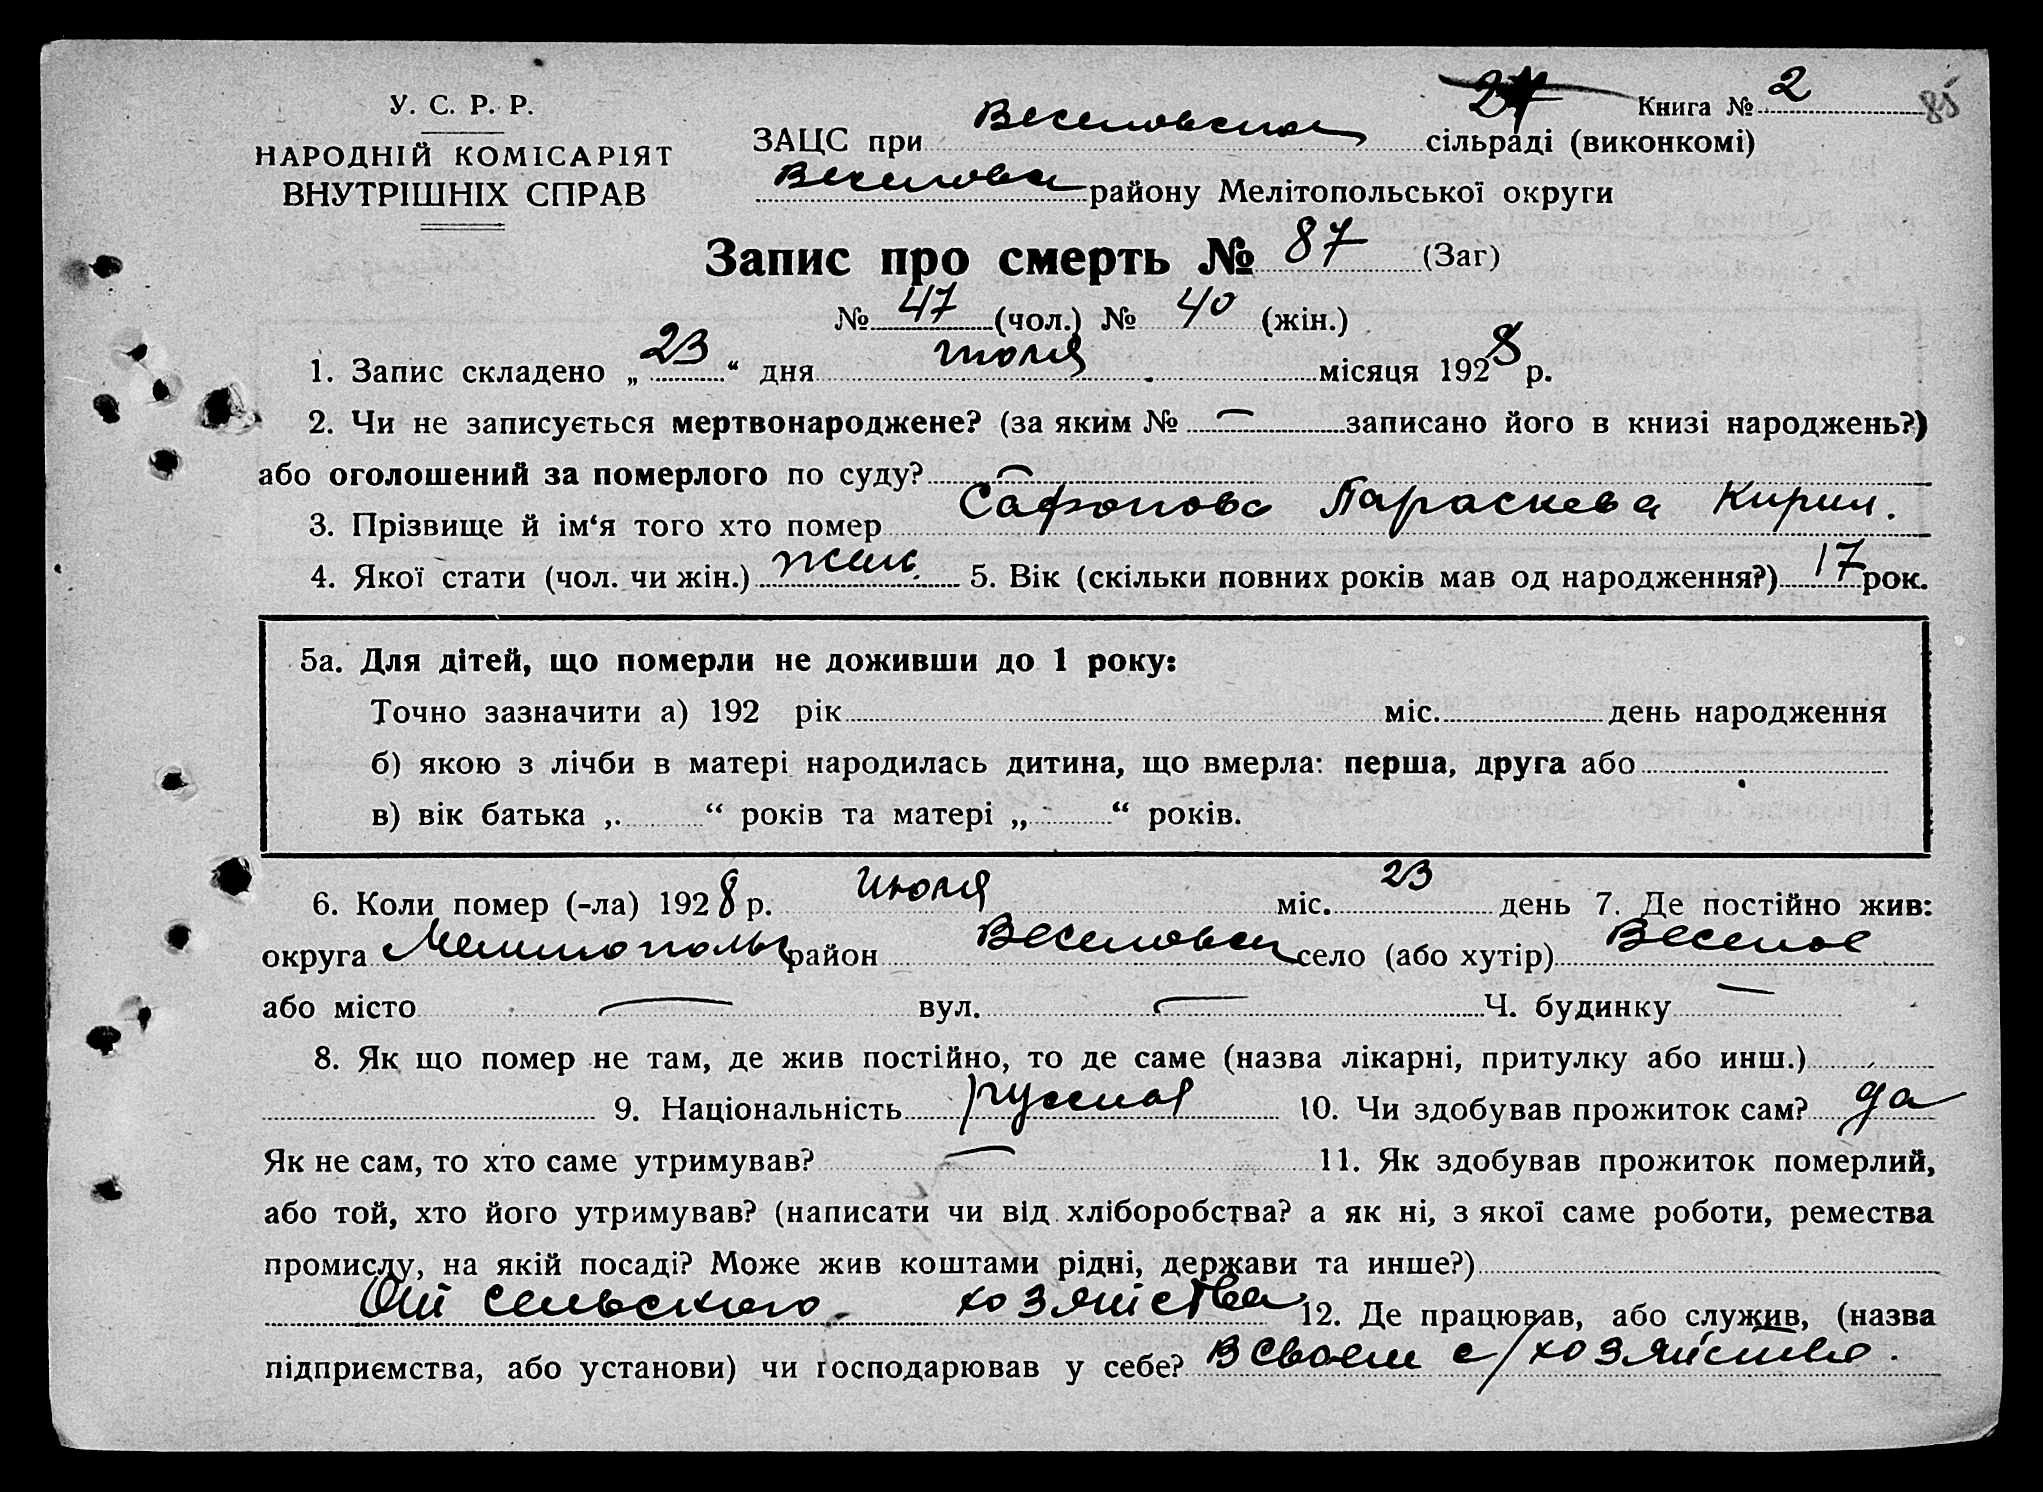 У. С. Р. Р.
НАРОДНІЙ КОМІСАРІЯТ
ВНУТРІШНІХ СПРАВ
Книга № 2 85
ЗАЦС при Веселовском сільраді (виконкомі)
Веселовск районy Мелітопольської округи
Запис про смерть № 87 (Заг)
№ 47 (чол.) № 40 (жін.)
1. Запис складено „ 23 “ дня июля місяця 1928 р.
2. Чи не записується мертвонароджене? (за яким № — записано його в книзі народжень?)
або оголошений за померлого по суду? —
3. Прізвище й ім‘я того хто помер Сафонова Параскева Кирил.
4. Якої стати (чол. чи жін.) жен. 5. Вік (скільки повних років мав од народження?) 17 рок.
5а. Для дітей, що померли не доживши до 1 року:
Точно зазначити а) 192 рік міс. день народження
б) якою з лічби в матері народилась дитина, що вмерла: перша, друга або
в) вік батька „ “ років та матері „ “ років.
6. Коли помер (-ла) 1928 р. июля міс. 23 день 7. Де постійно жив:
округа Мелитопольс район Веселовск село (або хутір) Веселое
або місто — вул. — Ч. будинку —
8. Як що помер не там, де жив постійно, то де саме (назва лікарні, притулку або инш.)
9. Національність русская 10. Чи здобував прожиток сам? да
Як не сам, то хто саме утримував? — 11. Як здобував прожиток померлий,
або той, хто його утримував? (написати чи від хліборобства? а як ні, з якої саме роботи, ремества
промислу, на якій посаді? Може жив коштами рідні, держави та инше?)
От сельского хозяйства 12. Де працював, або служив, (назва
підприємства, або установи) чи господарював у себе? В своем с/хозяйстве.